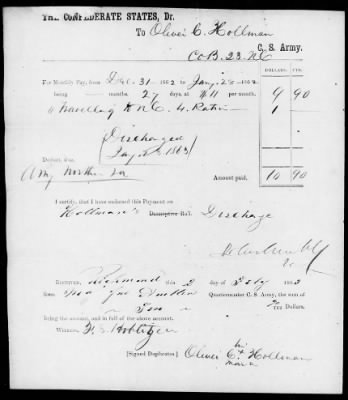 THE CONFEDERATE STATES, Dr.
To Oliver C. Hollman
Co B. 23. N C
C. S. Army.
DOLLARS. CTS.
For Monthly Pay, from Dec. 31 1862 to Jany 28 1862
being months, 27 days, at $11 per month. 9 90
" Travelling 4. Ratio 1
Discharged
Jany 28, 1863
Deduct, due
Army Northern Va
Amount paid. 10 90
I certify, that I have endorsed this Payment on
Hollman's Descriptive Roll. Discharge
RECEIVED, Richmond this 2 day of Feby 1863
from Maj Jno Quartermaster C. S. Army, the sum of
Ten 90/100 Dollars.
Being the amount, and in full of the above account.
WITNESS,
[Signed Duplicates.]
his
Oliver C. + Hollman
mark